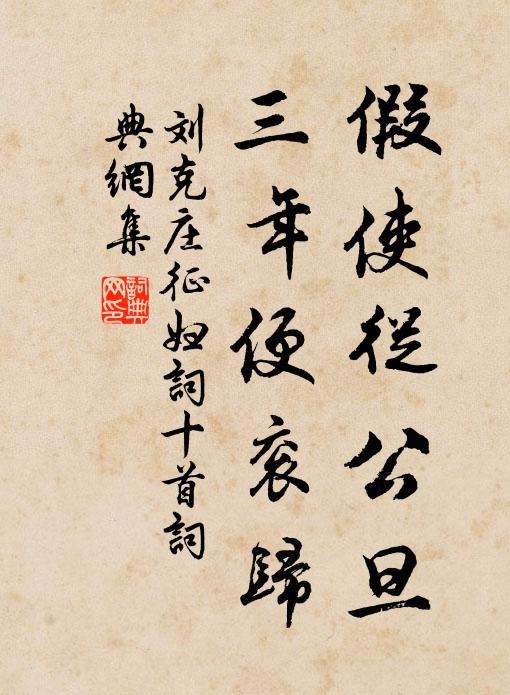 假使從公旦
三年便衮歸
刘克庄征妇詞十首詞
典網集
詞典
网印